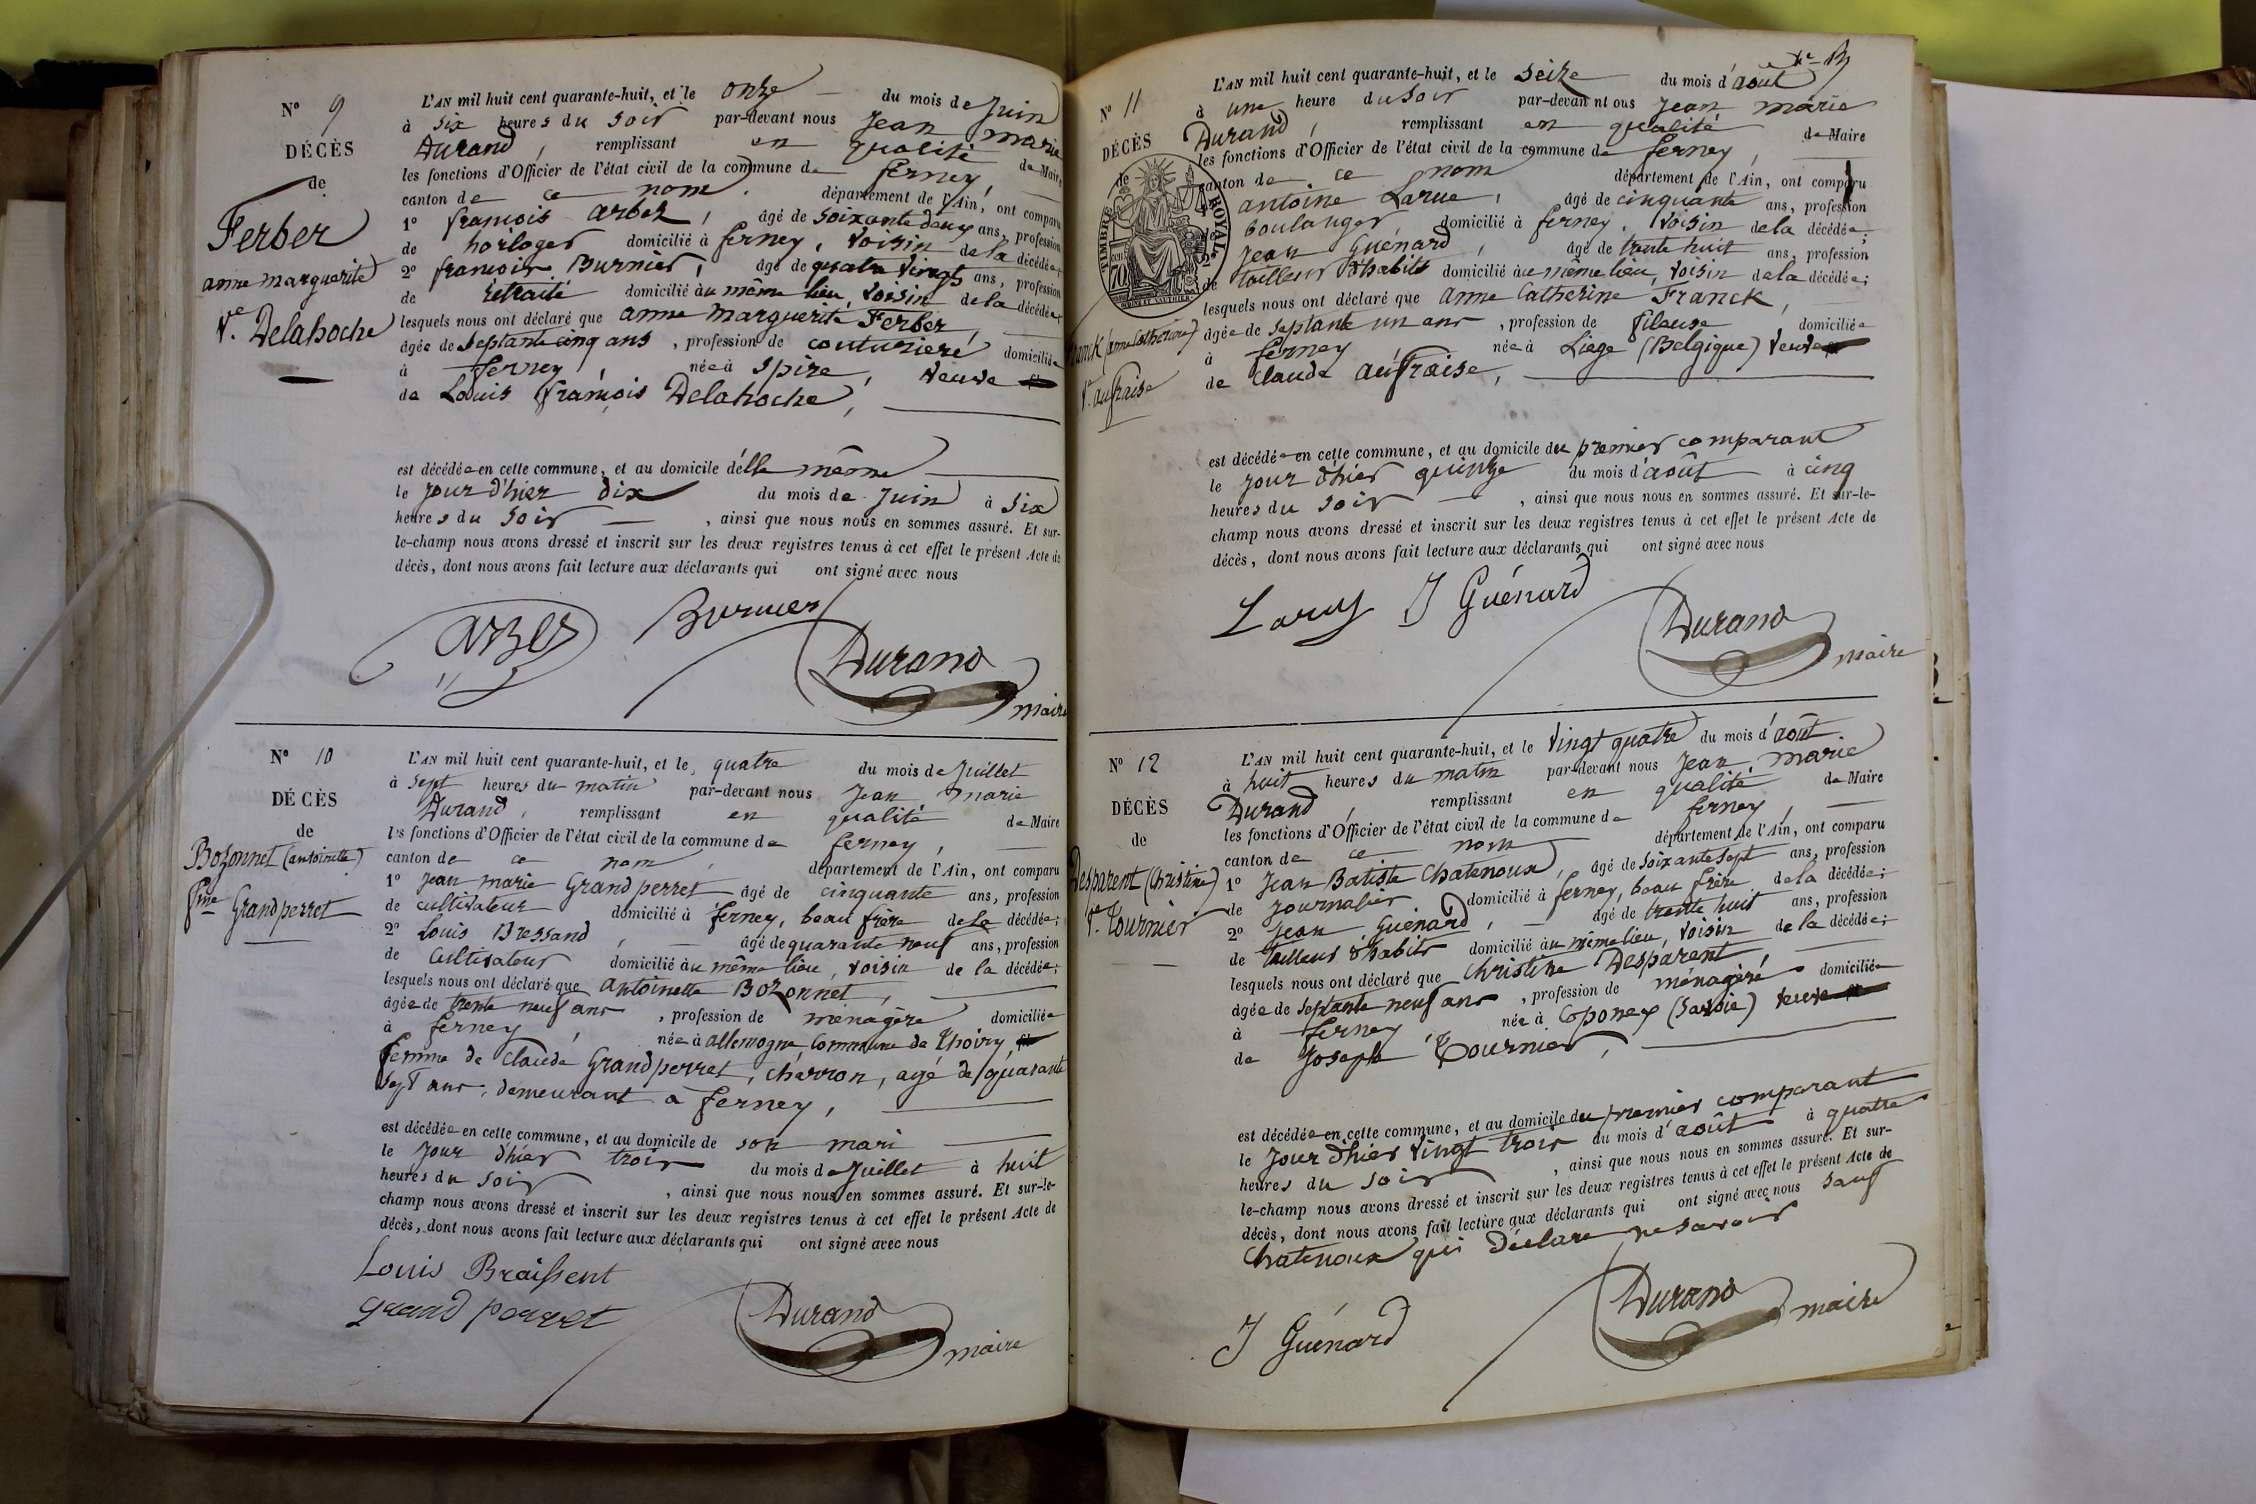 N° 9
DÉCÈS
de
Ferber
anne marguerite
Ve. Delahoche
L'AN mil huit cent quarante-huit, et le onze du mois de Juin
à six heures du soir par-devant nous Jean marie
Durand, remplissant en qualité de Maire
les fonctions d'Officier de l'état civil de la commune de ferney,
canton de ce nom, département de l'Ain, ont comparu
1° françois arbez, âgé de soixante deux ans, profession
de horloger domicilié à ferney, voisin de la décédée;
2° françois Burnier, âgé de quatre vingts ans, profession
de retraité domicilié au même lieu, voisin de la décédée;
lesquels nous ont déclaré que anne marguerite Ferber,
âgée de septante cinq ans, profession de couturière domiciliée
à ferney, née à Spire, veuve
de Louis françois Delahoche,
est décédée en cette commune, et au domicile d'elle même
le jour d'hier dix du mois de Juin à six
heures du soir, ainsi que nous nous en sommes assuré. Et sur-
le-champ nous avons dressé et inscrit sur les deux registres tenus à cet effet le présent Acte de
décès, dont nous avons fait lecture aux déclarants qui ont signé avec nous
arbez Burnier
Durand
maire
N° 10
DÉCÈS
de
Bozonnet (antoinette)
fme Grandperret
L'AN mil huit cent quarante-huit, et le quatre du mois de Juillet
à sept heures du matin par-devant nous Jean marie
Durand, remplissant en qualité de Maire
les fonctions d'Officier de l'état civil de la commune de ferney,
canton de ce nom, département de l'Ain, ont comparu
1° Jean marie Grandperret âgé de cinquante ans, profession
de cultivateur domicilié à ferney, beau frère de la décédée;
2° Louis Bressand, âgé de quarante neuf ans, profession
de cultivateur domicilié au même lieu, voisin de la décédée;
lesquels nous ont déclaré que antoinette Bozonnet,
âgée de trente neuf ans, profession de ménagère domiciliée
à ferney, née à allemogne, commune de Thoiry,
femme de Claude Grandperret, charron, agé de quarante
sept ans, demeurant à ferney,
est décédée en cette commune, et au domicile de son mari
le jour d'hier trois du mois de Juillet à huit
heures du soir, ainsi que nous nous en sommes assuré. Et sur-le-
champ nous avons dressé et inscrit sur les deux registres tenus à cet effet le présent Acte de
décès, dont nous avons fait lecture aux déclarants qui ont signé avec nous
Louis Braissent
grand perret
Durand
maire
N° 11
DÉCÈS
de
TIMBRE ROYAL
70
Franck (anne Catherine)
Ve. aufraise
L'AN mil huit cent quarante-huit, et le seize du mois d'août
à une heure du soir par-devant nous Jean marie
Durand, remplissant en qualité de Maire
les fonctions d'Officier de l'état civil de la commune de ferney,
canton de ce nom département de l'Ain, ont comparu
antoine Larue, âgé de cinquante ans, profession
boulanger domicilié à ferney, voisin de la décédée;
2° Jean Guénard, âgé de trente huit ans, profession
de tailleur d'habits domicilié au même lieu, voisin de la décédée;
lesquels nous ont déclaré que anne Catherine Franck,
âgée de septante un ans, profession de fileuse domiciliée
à ferney née à Liège (Belgique) veuve
de Claude aufraise,
est décédée en cette commune, et au domicile du premier comparant
le jour d'hier quinze du mois d'août à cinq
heures du soir, ainsi que nous nous en sommes assuré. Et sur-le-
champ nous avons dressé et inscrit sur les deux registres tenus à cet effet le présent Acte de
décès, dont nous avons fait lecture aux déclarants qui ont signé avec nous
Larue J Guénard
Durand
maire
N° 12
DÉCÈS
de
Desparent (Christine)
Ve. Tournier
L'AN mil huit cent quarante-huit, et le vingt quatre du mois d'août
à huit heures du matin par-devant nous Jean marie
Durand, remplissant en qualité de Maire
les fonctions d'Officier de l'état civil de la commune de ferney,
canton de ce nom département de l'Ain, ont comparu
1° Jean Batiste Chatenoux, âgé de soixante sept ans, profession
de journalier domicilié à ferney, beau frère de la décédée;
2° Jean Guénard, âgé de trente huit ans, profession
de tailleur d'habits domicilié au même lieu, voisin de la décédée;
lesquels nous ont déclaré que Christine Desparent
âgée de septante neuf ans, profession de ménagère domiciliée
à ferney née à Eponex (Savoie) veuve
de Joseph Tournier,
est décédée en cette commune, et au domicile du premier comparant
le jour d'hier vingt trois du mois d'août à quatre
heures du soir, ainsi que nous nous en sommes assuré. Et sur-
le-champ nous avons dressé et inscrit sur les deux registres tenus à cet effet le présent Acte de
décès, dont nous avons fait lecture aux déclarants qui ont signé avec nous sauf
Chatenoux qui déclare ne savoir
J Guénard
Durand
maire